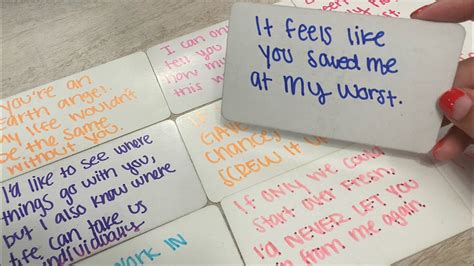 It feels like
you saved me
at my worst.
I can on
tell you
how mu
this w
You're an
earth angel.
life wouldn't
be the same
without you.
I'd like to see where
things go with you,
but I also know where
life can take us
individually
chance
SCREW IT U
If only we could
start over fresh,
I'd NEVER LET YOU
from me again.
WORK IN